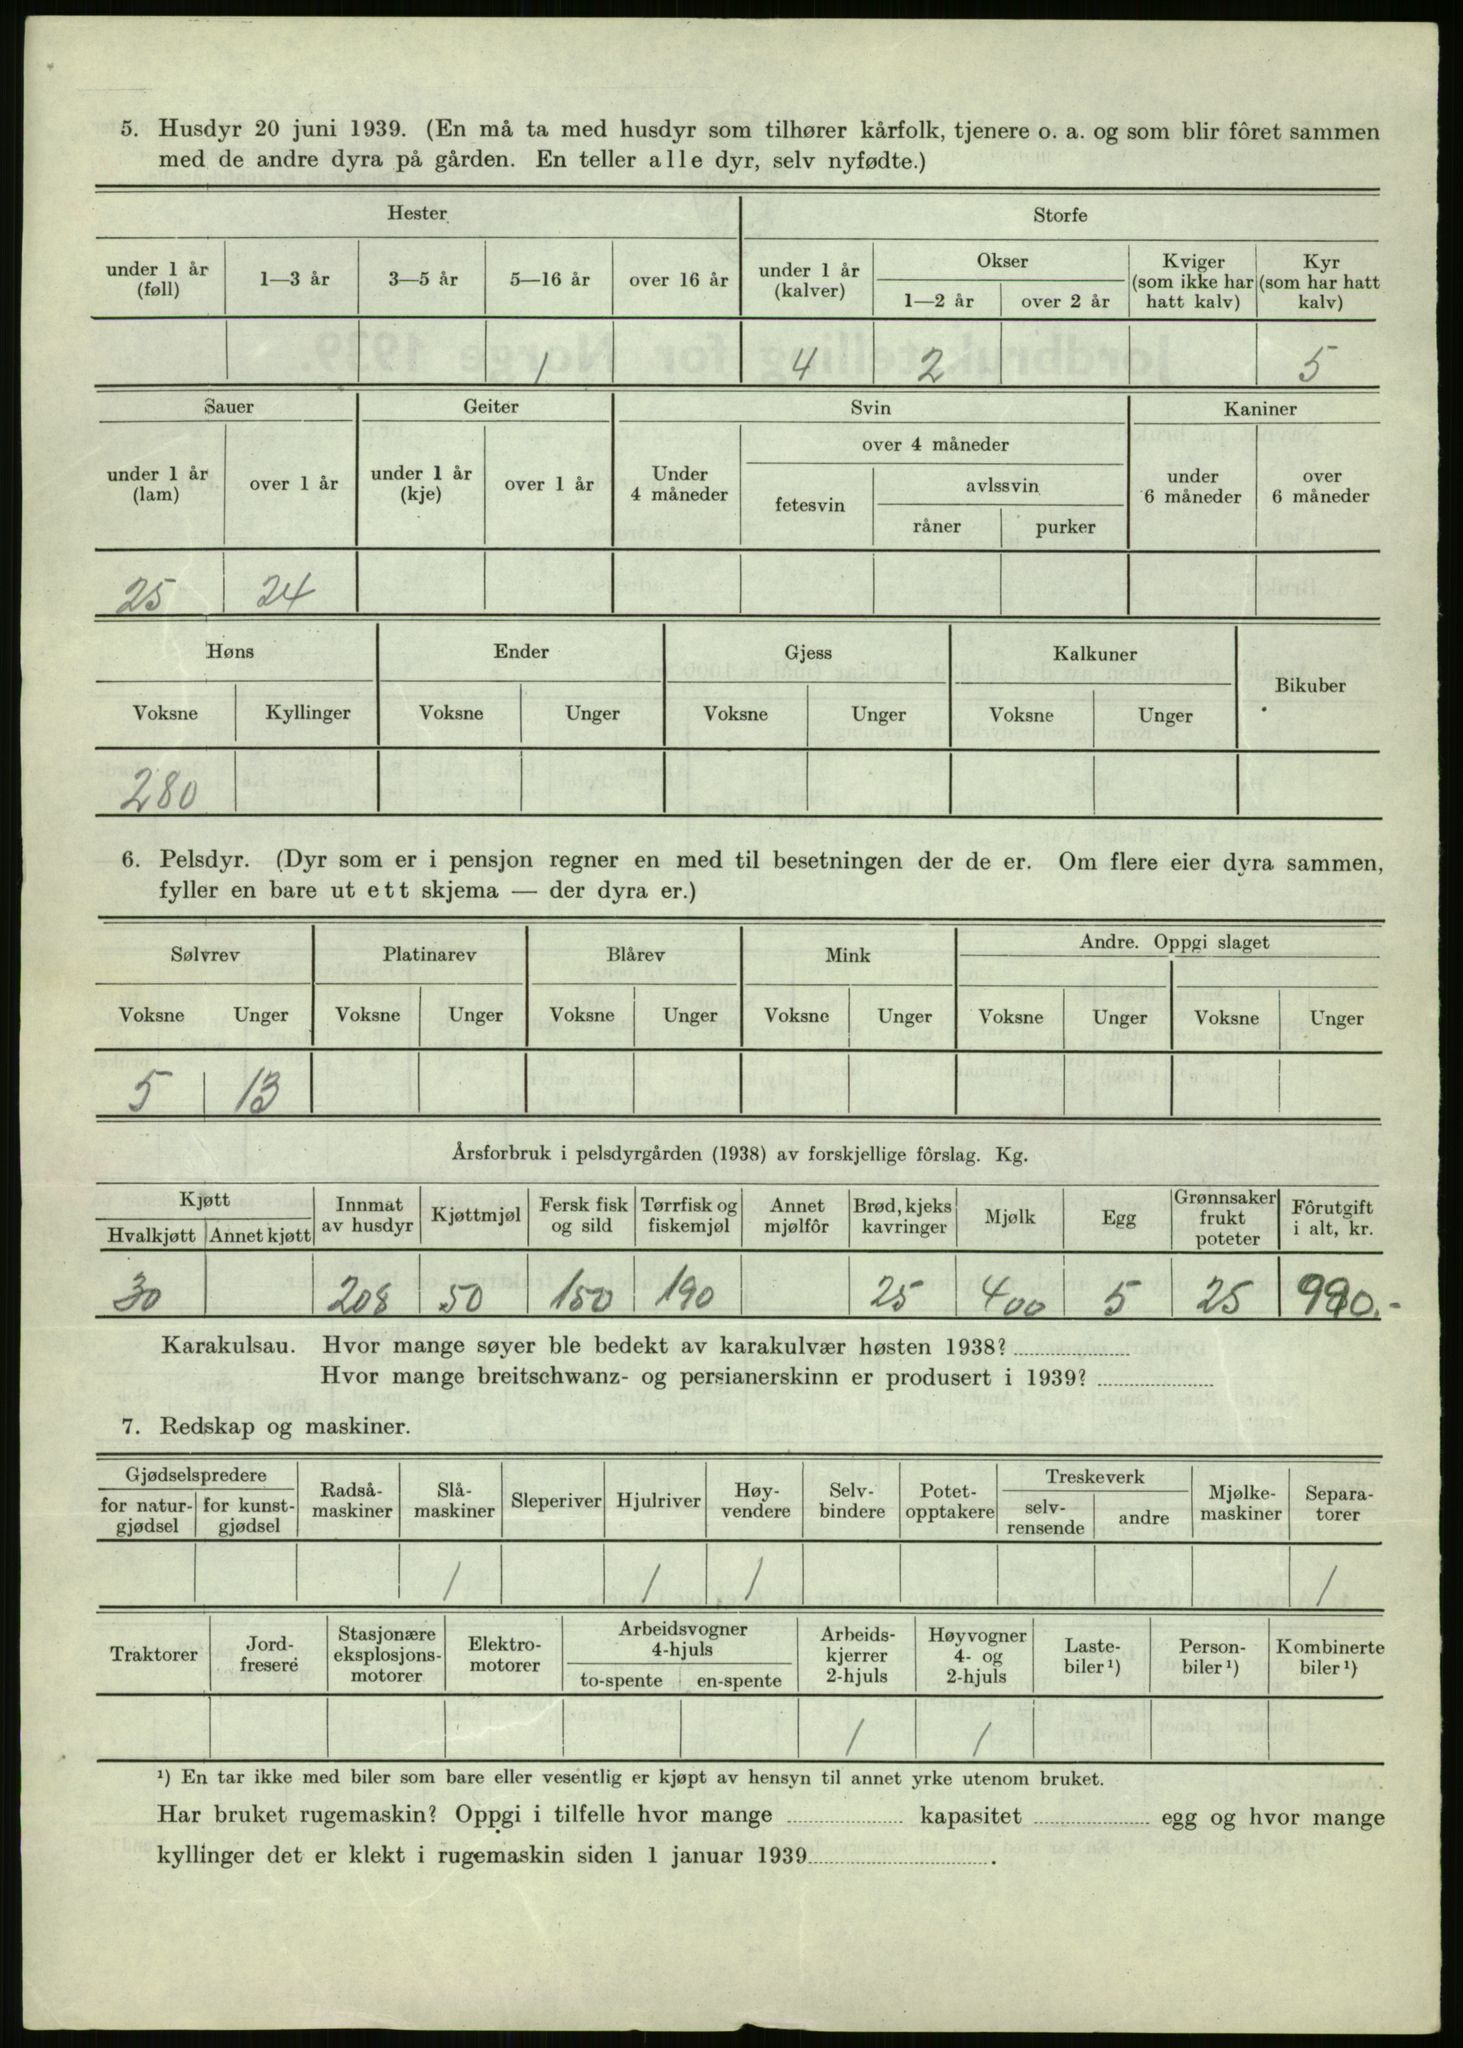 5. Husdyr 20 juni 1939. (En må ta med husdyr som tilhører kårfolk, tjenere o. a. og som blir fôret sammen
med de andre dyra på gården. En teller alle dyr, selv nyfødte.)
Hester Storfe
under 1 år (føll) 1—3 år 3—5 år 5—16 år over 16 år under 1 år (kalver) Okser 1—2 år over 2 år Kviger (som ikke har hatt kalv) Kyr (som har hatt kalv)
1 4 2 5
Sauer Geiter Svin Kaniner
under 1 år (lam) over 1 år under 1 år (kje) over 1 år Under 4 måneder over 4 måneder fetesvin avlssvin råner purker under 6 måneder over 6 måneder
25 24
Høns Ender Gjess Kalkuner Bikuber
Voksne Kyllinger Voksne Unger Voksne Unger Voksne Unger
280
6. Pelsdyr. (Dyr som er i pensjon regner en med til besetningen der de er. Om flere eier dyra sammen,
fyller en bare ut ett skjema — der dyra er.)
Sølvrev Platinarev Blårev Mink Andre. Oppgi slaget
Voksne Unger Voksne Unger Voksne Unger Voksne Unger Voksne Unger Voksne Unger
5 13
Årsforbruk i pelsdyrgården (1938) av forskjellige fôrslag. Kg.
Kjøtt Hvalkjøtt Annet kjøtt Innmat av husdyr Kjøttmjøl Fersk fisk og sild Tørrfisk og fiskemjøl Annet mjølfôr Brød, kjeks kavringer Mjølk Egg Grønnsaker frukt poteter Fôrutgift i alt, kr.
30 208 50 150 190 25 400 5 25
Karakulsau. Hvor mange søyer ble bedekt av karakulvær høsten 1938?
Hvor mange breitschwanz- og persianerskinn er produsert i 1939?
7. Redskap og maskiner.
Gjødselspredere for natur-gjødsel for kunst-gjødsel Radså-maskiner Slå-maskiner Sleperiver Hjulriver Høy-vendere Selv-bindere Potet-opptakere Treskeverk selv-rensende andre Mjølke-maskiner Separa-torer
1 1 1 1
Traktorer Jord-fresere Stasjonære eksplosjons-motorer Elektro-motorer Arbeidsvogner 4-hjuls to-spente en-spente Arbeids-kjerrer 2-hjuls Høyvogner 4- og 2-hjuls Laste-biler ¹) Person-biler ¹) Kombinerte biler ¹)
1 1
¹) En tar ikke med biler som bare eller vesentlig er kjøpt av hensyn til annet yrke utenom bruket.
Har bruket rugemaskin? Oppgi i tilfelle hvor mange kapasitet egg og hvor mange
kyllinger det er klekt i rugemaskin siden 1 januar 1939 .